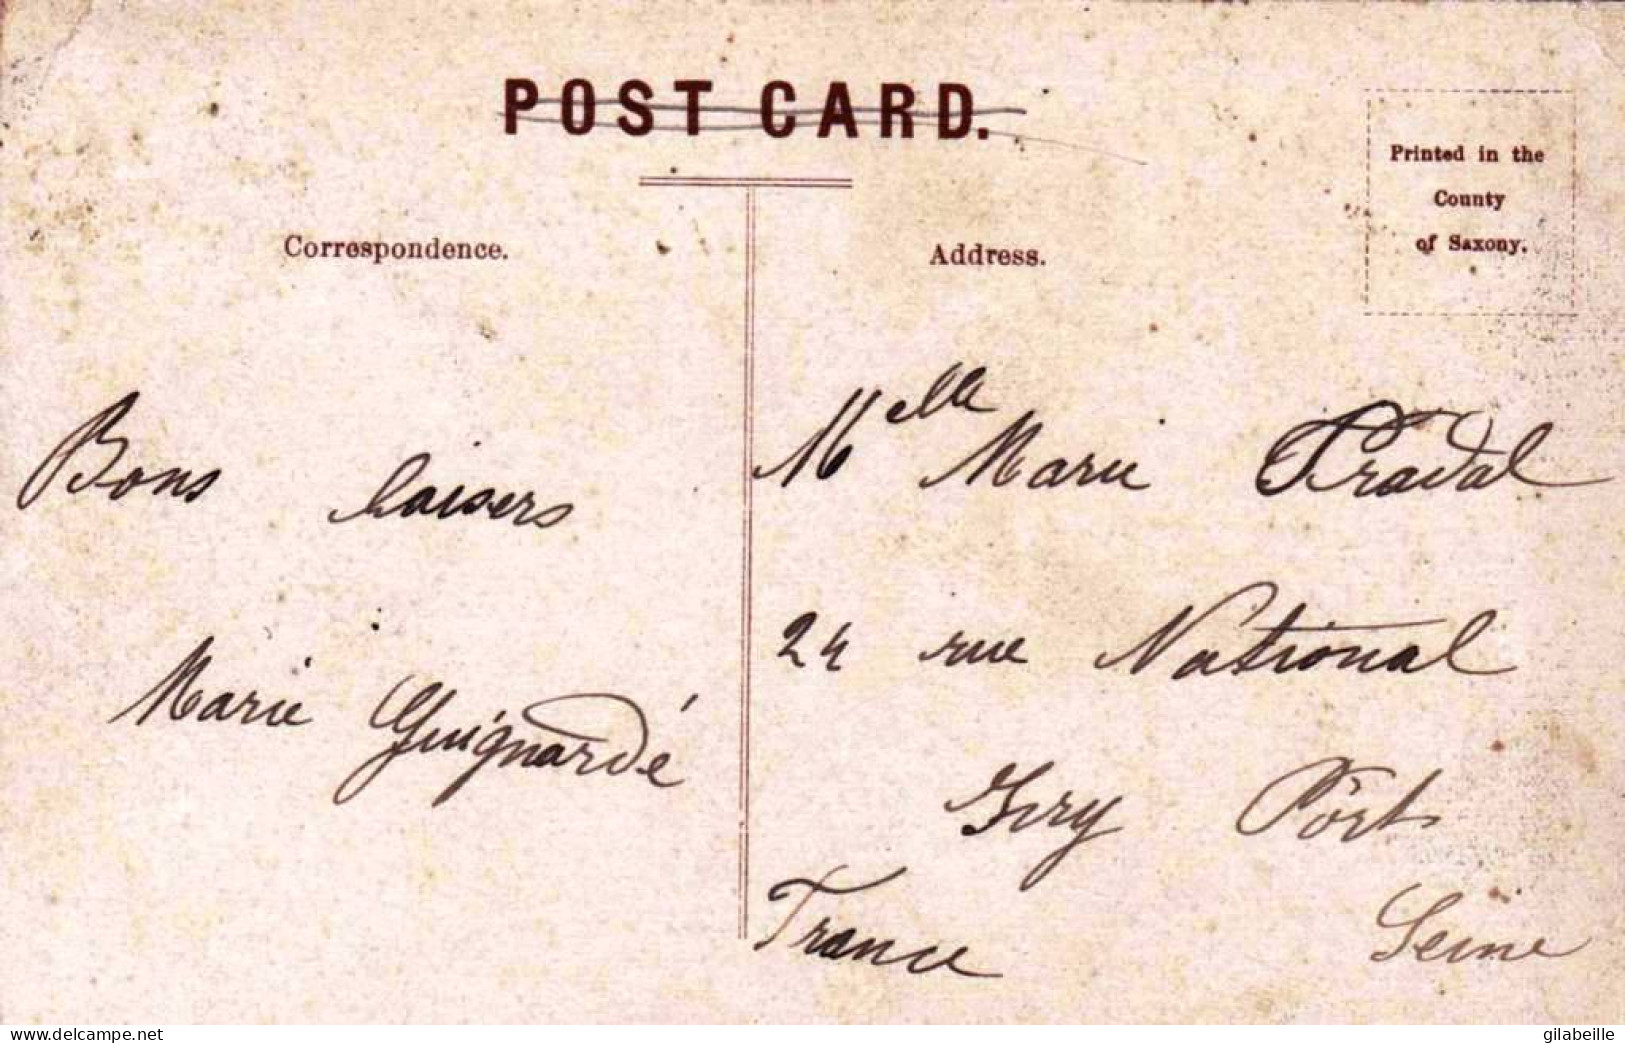 POST CARD.
Correspondence.
Address.
Printed in the
County
of Saxony.
Bons baisers
Marie Guignardé
Melle Marie Pradal
24 rue National
Ivry Port
Seine
France
www.delcampe.net
gilabeille